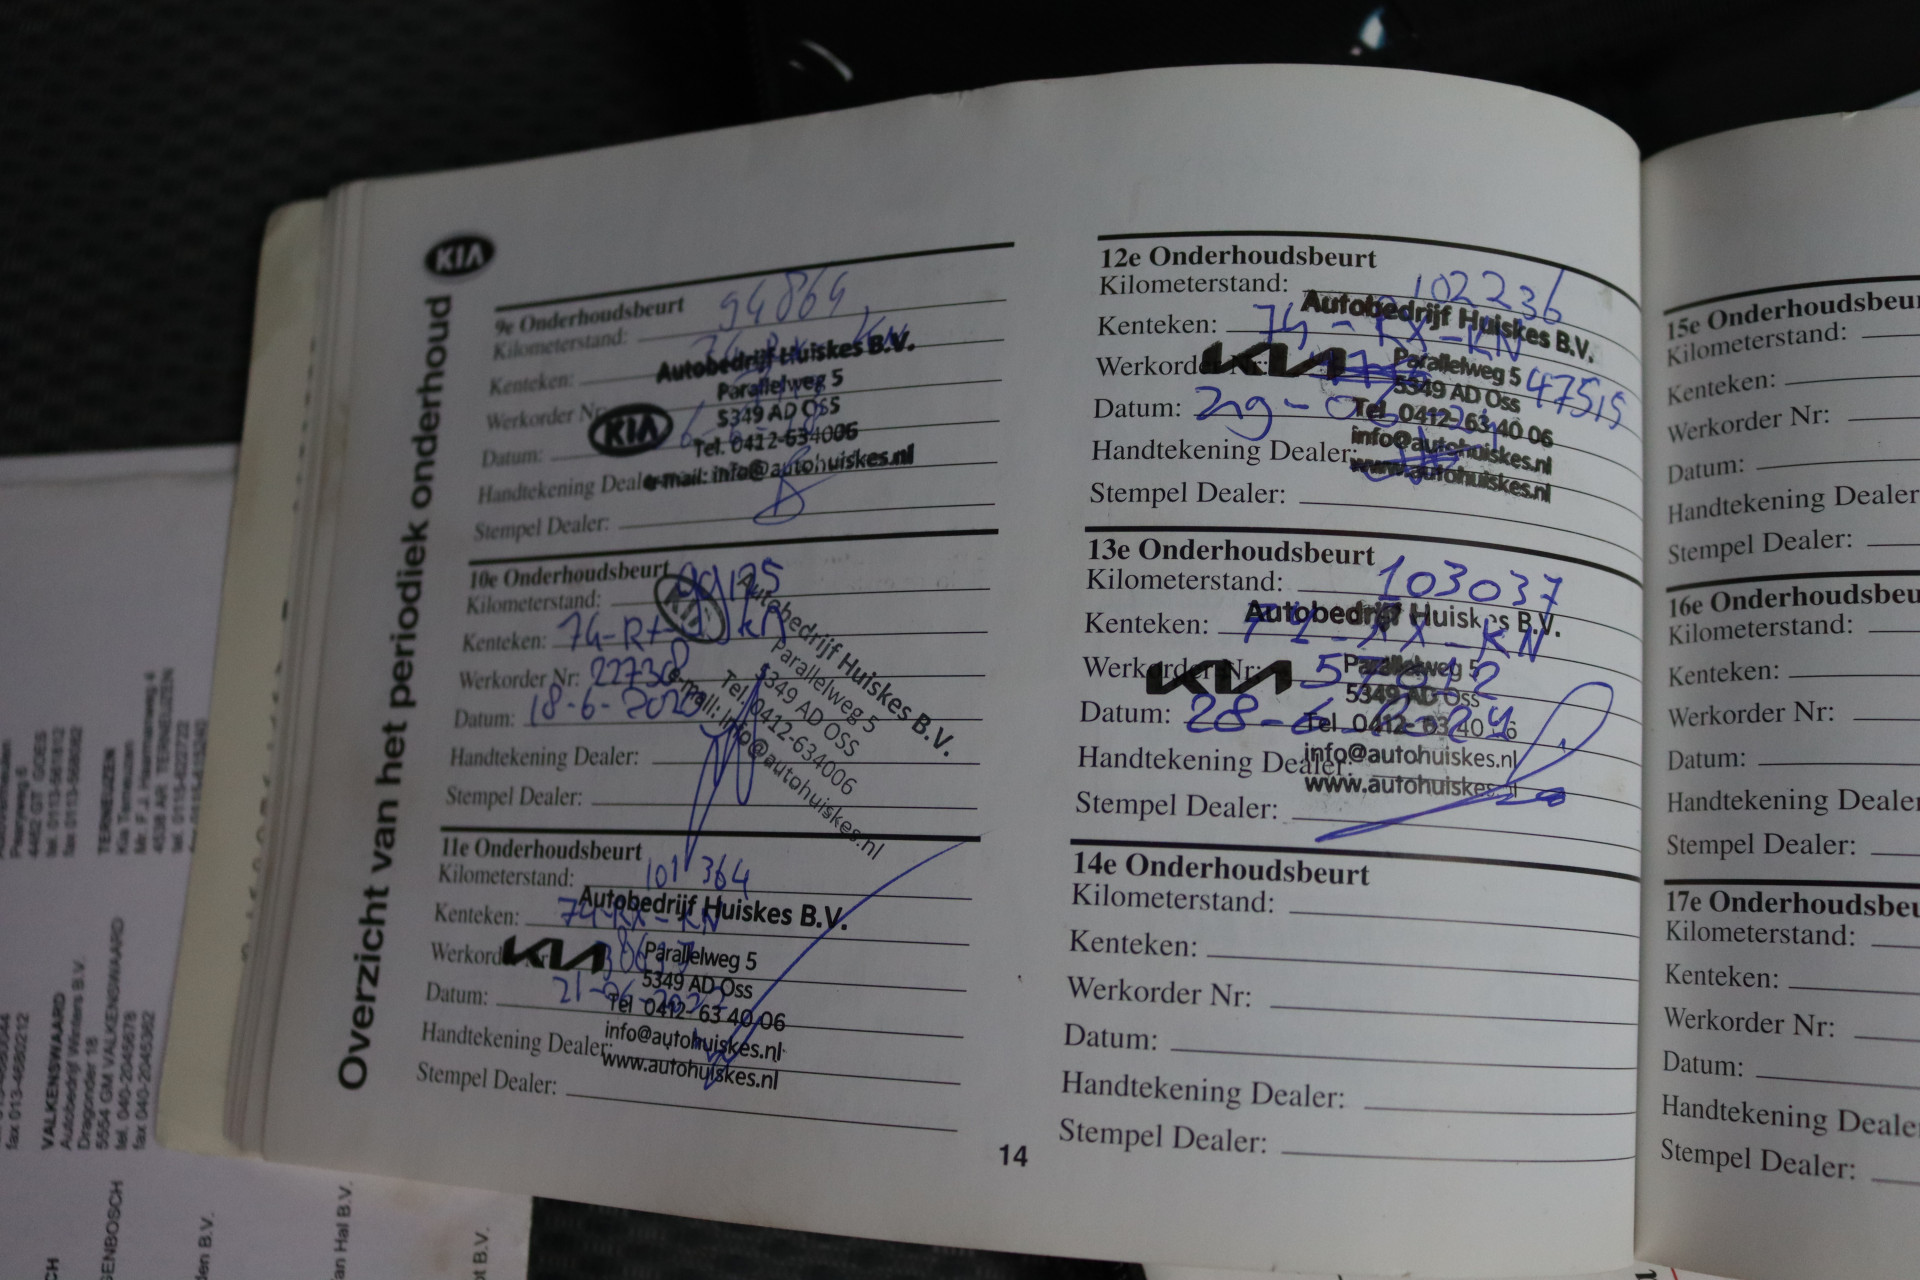 KIA
Overzicht van het periodiek onderhoud
9e Onderhoudsbeurt
Kilometerstand: 94864
Kenteken:
Werkorder Nr:
Datum:
Handtekening Dealer:
Stempel Dealer:
Autobedrijf Huiskes B.V.
Parallelweg 5
5349 AD OSS
KIA
Tel. 0412-634006
e-mail: info@autohuiskes.nl
10e Onderhoudsbeurt
Kilometerstand: 99125
Kenteken: 74-RX-KN
Werkorder Nr: 22730
Datum: 18-6-2020
Handtekening Dealer:
Stempel Dealer:
KIA
Autobedrijf Huiskes B.V.
Parallelweg 5
5349 AD OSS
Tel. 0412-634006
e-mail: info@autohuiskes.nl
11e Onderhoudsbeurt
Kilometerstand: 101364
Kenteken: 74-RX-KN
Werkorder Nr:
Datum: 21-06-2022
Handtekening Dealer:
Stempel Dealer:
Autobedrijf Huiskes B.V.
KIA
Parallelweg 5
5349 AD Oss
Tel 0412- 63 40 06
info@autohuiskes.nl
www.autohuiskes.nl
12e Onderhoudsbeurt
Kilometerstand: 102236
Kenteken: 74-RX-KN
Werkorder Nr: 47515
Datum: 29-06-
Handtekening Dealer:
Stempel Dealer:
Autobedrijf Huiskes B.V.
KIA
Parallelweg 5
5349 AD Oss
Tel 0412- 63 40 06
info@autohuiskes.nl
www.autohuiskes.nl
13e Onderhoudsbeurt
Kilometerstand: 103037
Kenteken: 74-RX-KN
Werkorder Nr:
Datum: 28-6-2024
Handtekening Dealer:
Stempel Dealer:
Autobedrijf Huiskes B.V.
KIA
Parallelweg 5
5349 AD Oss
Tel 0412- 63 40 06
info@autohuiskes.nl
www.autohuiskes.nl
14e Onderhoudsbeurt
Kilometerstand:
Kenteken:
Werkorder Nr:
Datum:
Handtekening Dealer:
Stempel Dealer:
14
15e Onderhoudsbeur
Kilometerstand:
Kenteken:
Werkorder Nr:
Datum:
Handtekening Dealer
Stempel Dealer:
16e Onderhoudsbeu
Kilometerstand:
Kenteken:
Werkorder Nr:
Datum:
Handtekening Dealer
Stempel Dealer:
17e Onderhoudsbeu
Kilometerstand:
Kenteken:
Werkorder Nr:
Datum:
Handtekening Deale
Stempel Dealer:
4462 GT GOES
tel. 0113-561612
fax 0113-568082
TERNEUZEN
Kia Terneuzen
Mr. F.J. Haarmanweg 4
4538 AR TERNEUZEN
tel. 0115-622722
fax 013-4680212
VALKENSWAARD
Autobedrijf Winters B.V.
Dragonder 18
5554 GM VALKENSWAARD
tel. 040-2045678
fax 040-2045362
GENBOSCH
den B.V.
an Hal B.V.